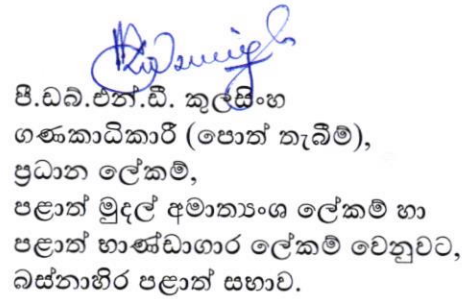 පී.ඩබ්.එන්.ඩී. කුලසිංහ
ගණකාධිකාරී (පොත් තැබීම්),
ප්‍රධාන ලේකම්,
පළාත් මුදල් අමාත්‍යංශ ලේකම් හා
පළාත් භාණ්ඩාගාර ලේකම් වෙනුවට,
බස්නාහිර පළාත් සභාව.